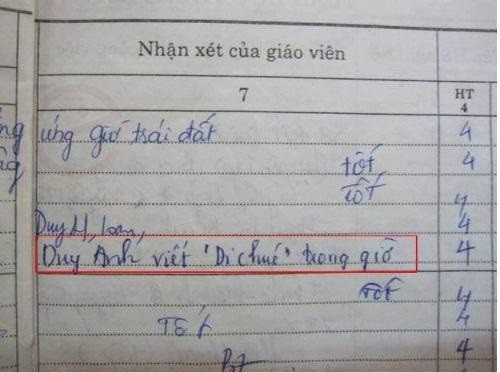 Nhận xét của giáo viên
7 HT 4
ứng giờ trái đất 4
tốt 4
Tốt 4
Duy H, loan, 4
Duy Anh viết "Di chúc" trong giờ 4
Tốt 4
Tốt 4
4